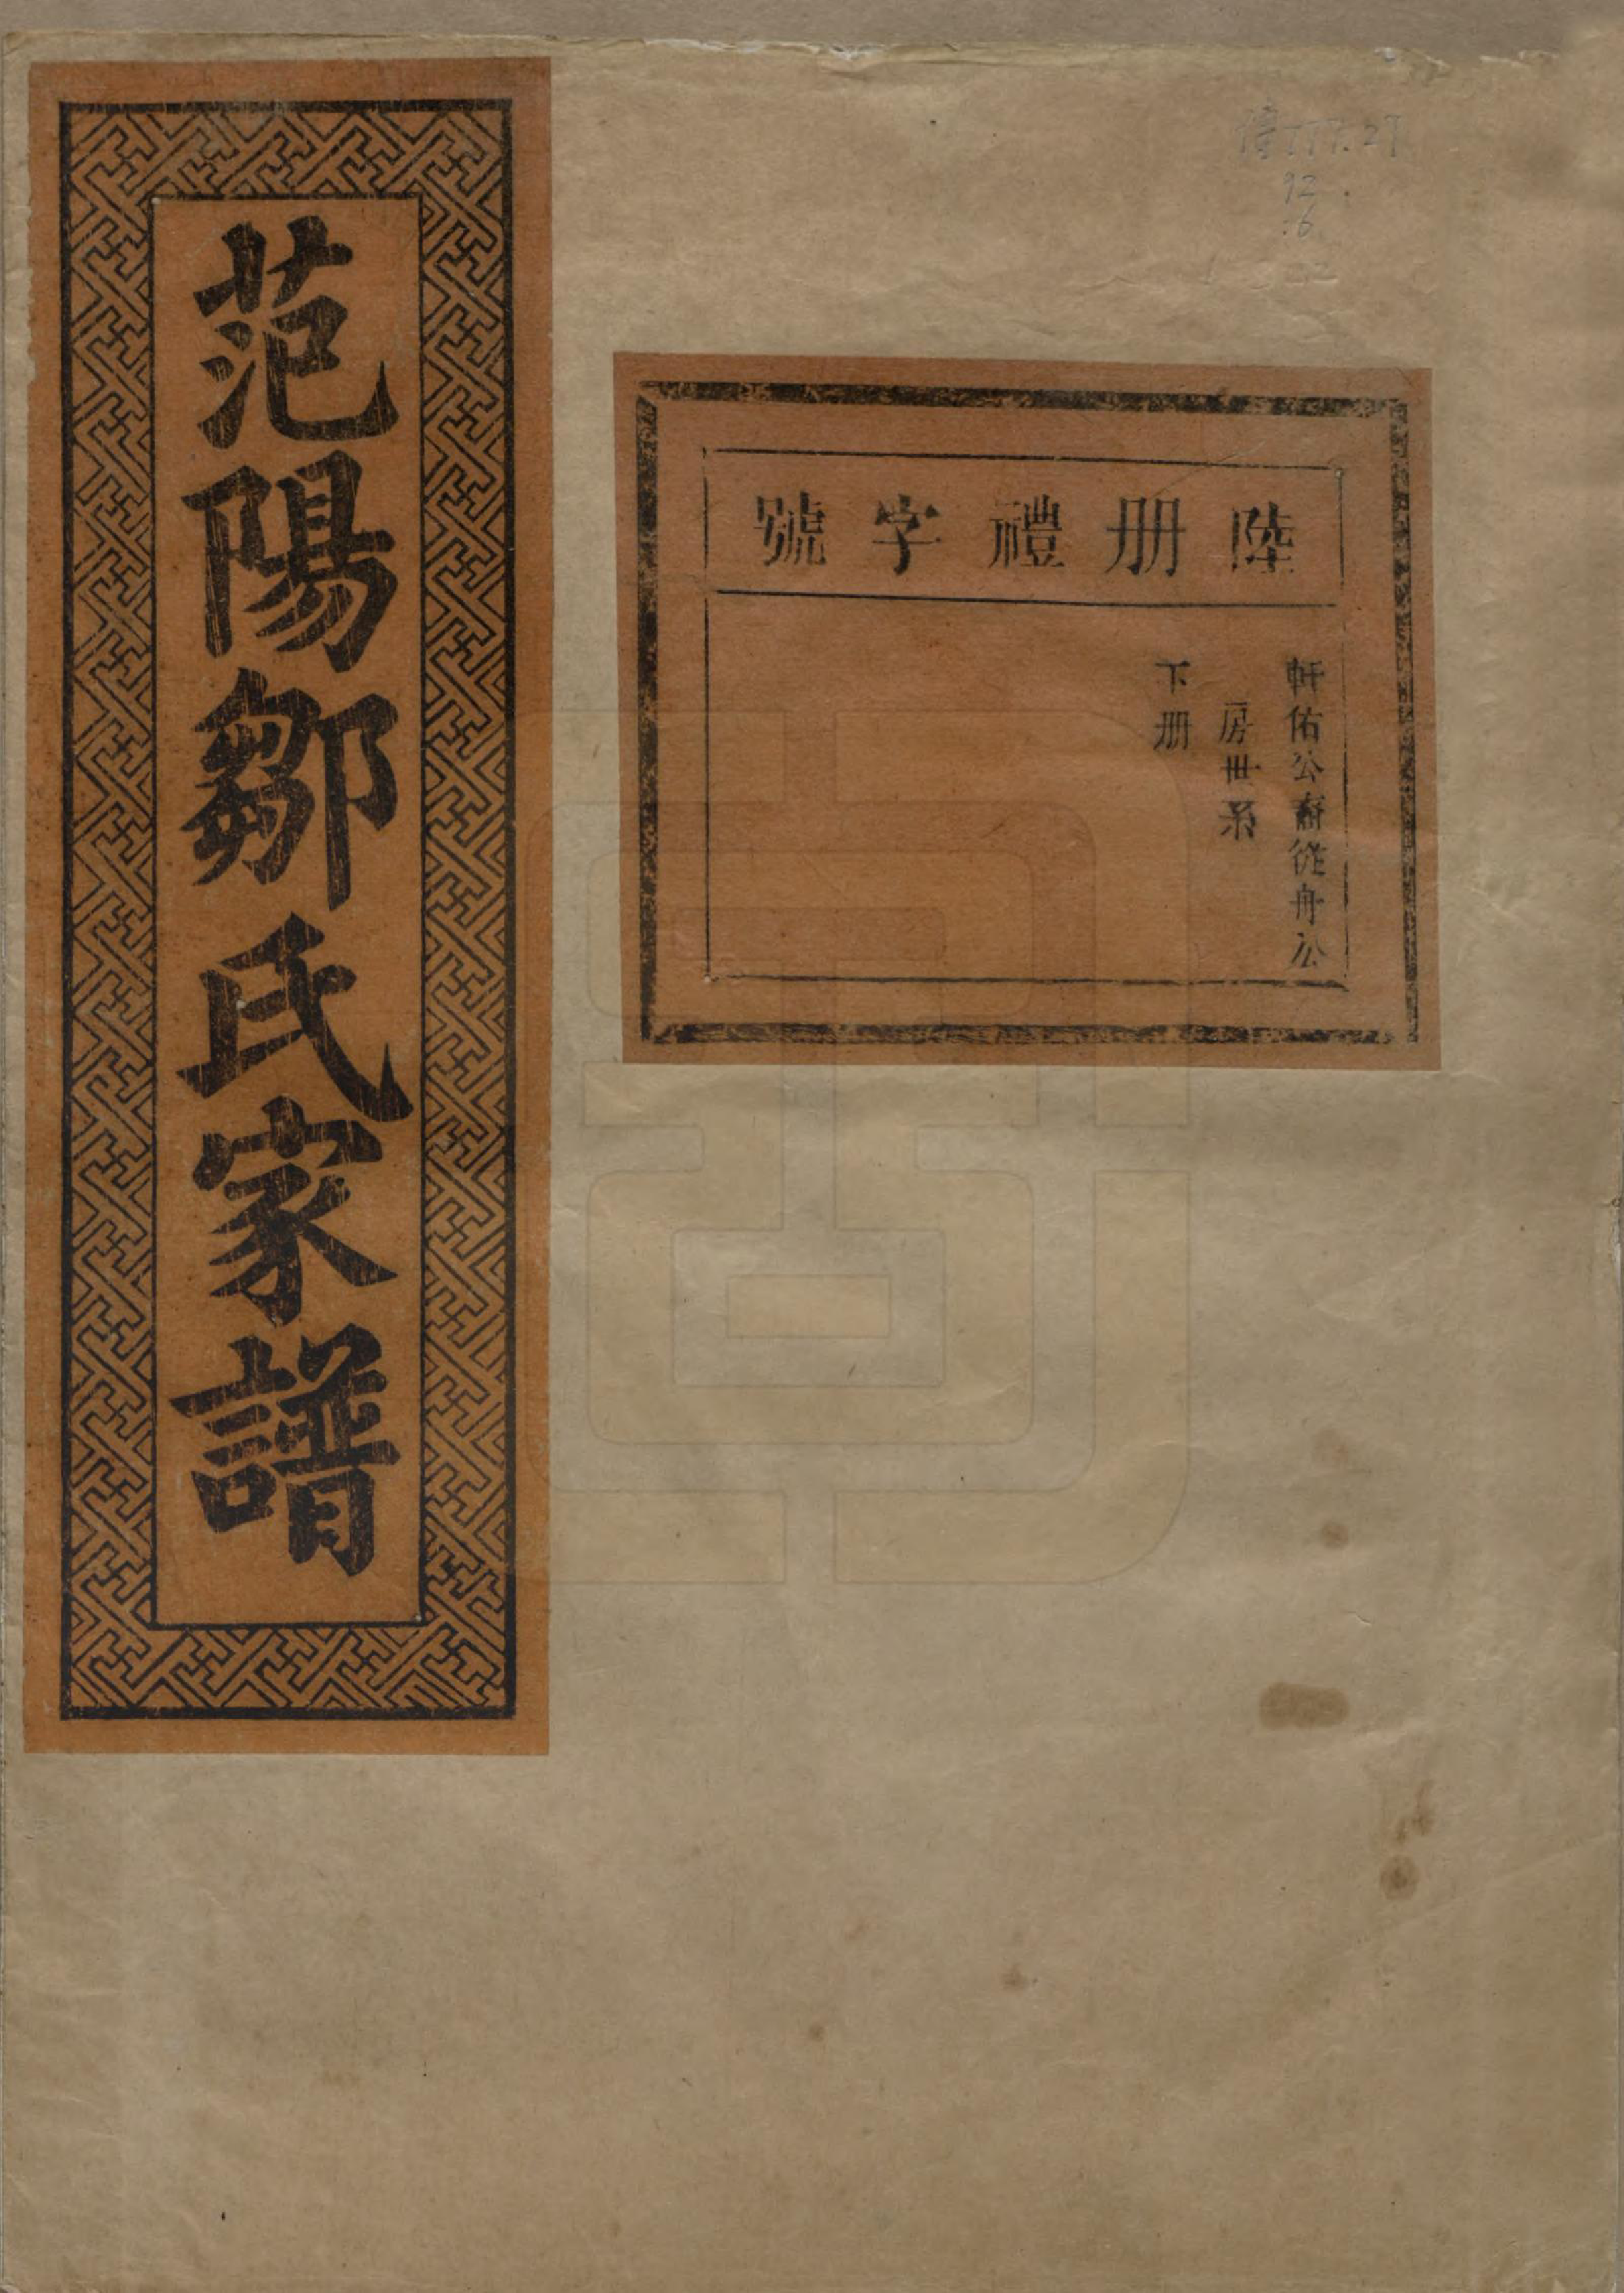 范陽鄒氏家譜
陸册禮字號
軒佑公裔從舟公
房世系
下册
92
6